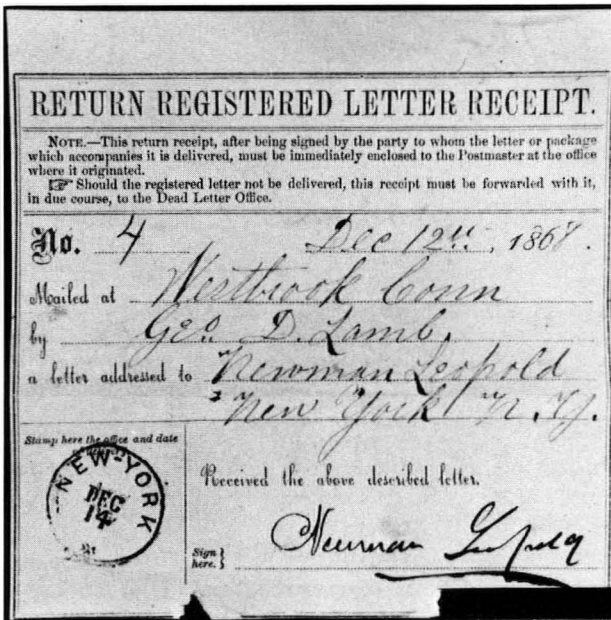 RETURN REGISTERED LETTER RECEIPT.
NOTE.—This return receipt, after being signed by the party to whom the letter or package
which accompanies it is delivered, must be immediately enclosed to the Postmaster at the office
where it originated.
☞ Should the registered letter not be delivered, this receipt must be forwarded with it,
in due course, to the Dead Letter Office.
No. 4 Dec 12th, 1868.
Mailed at Westbrook Conn
by Geo. D. Lamb,
a letter addressed to Newman Leopold
New York N.Y.
Stamp here the office and date
NEW-YORK
DEC
14
Received the above described letter.
Sign here. } Newman Leopold